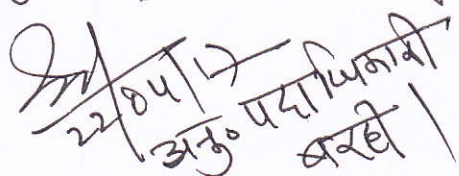 22/04/17
अनु० पदाधिकारी
बरही।